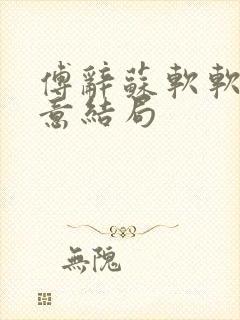 傅辭蘇軟軟
意結局
無隐